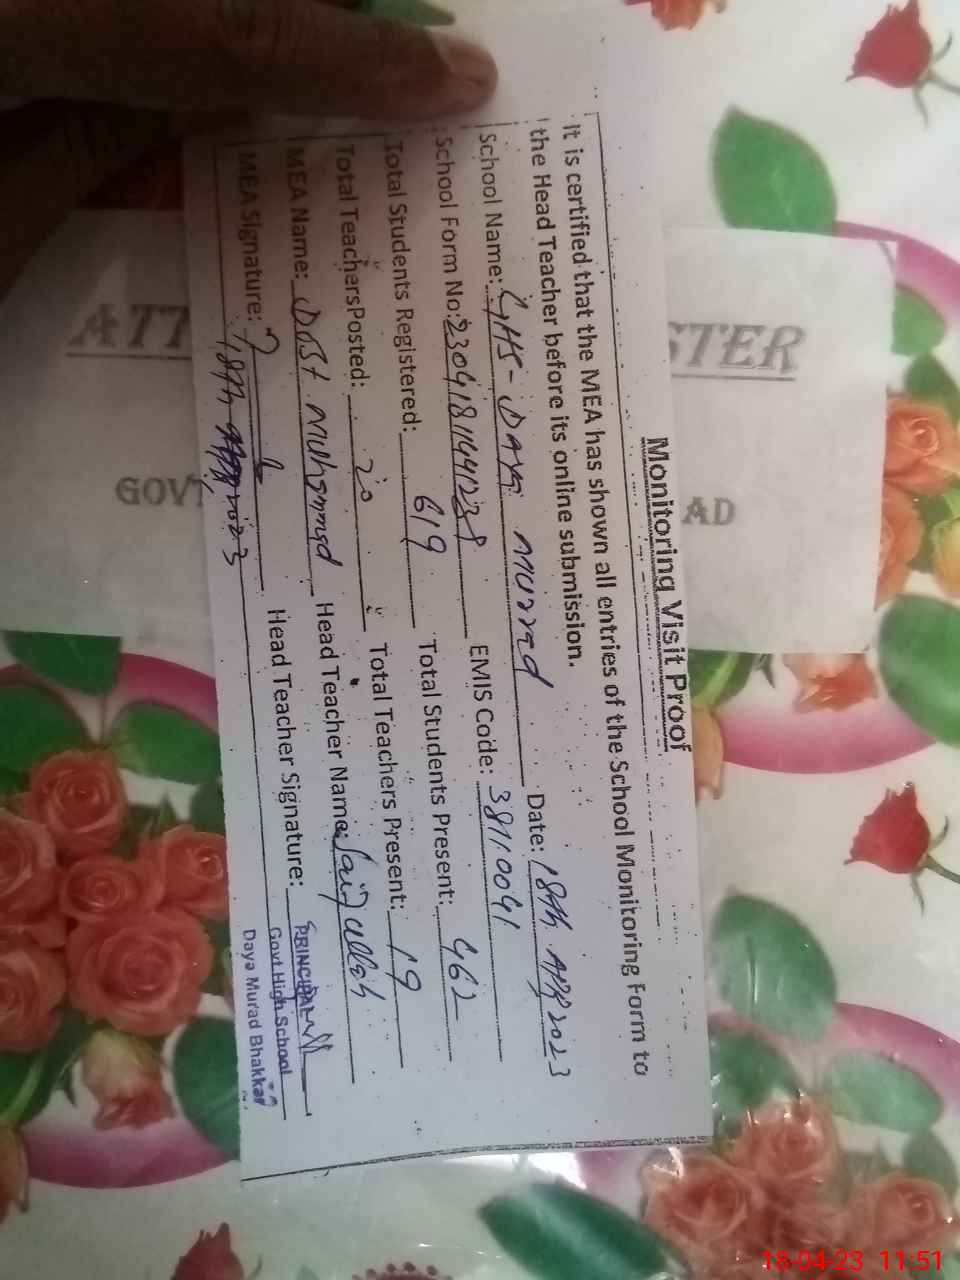 Monitoring Visit Proof
It is certified that the MEA has shown all entries of the School Monitoring Form to
the Head Teacher before its online submission.
School Name: GHS- Daya Murad Date: 18th Apr 2023
School Form No: EMIS Code: 38110041
Total Students Registered: 619 Total Students Present: 462
Total TeachersPosted: 20 Total Teachers Present: 19
MEA Name: Dost Muhammad Head Teacher Name: Saif ullah
MEA Signature: Head Teacher Signature:
18th 2023
PRINCIPAL
Govt High School
Daya Murad Bhakkar
ATT STER
GOVT AD
18-04-23 11:51